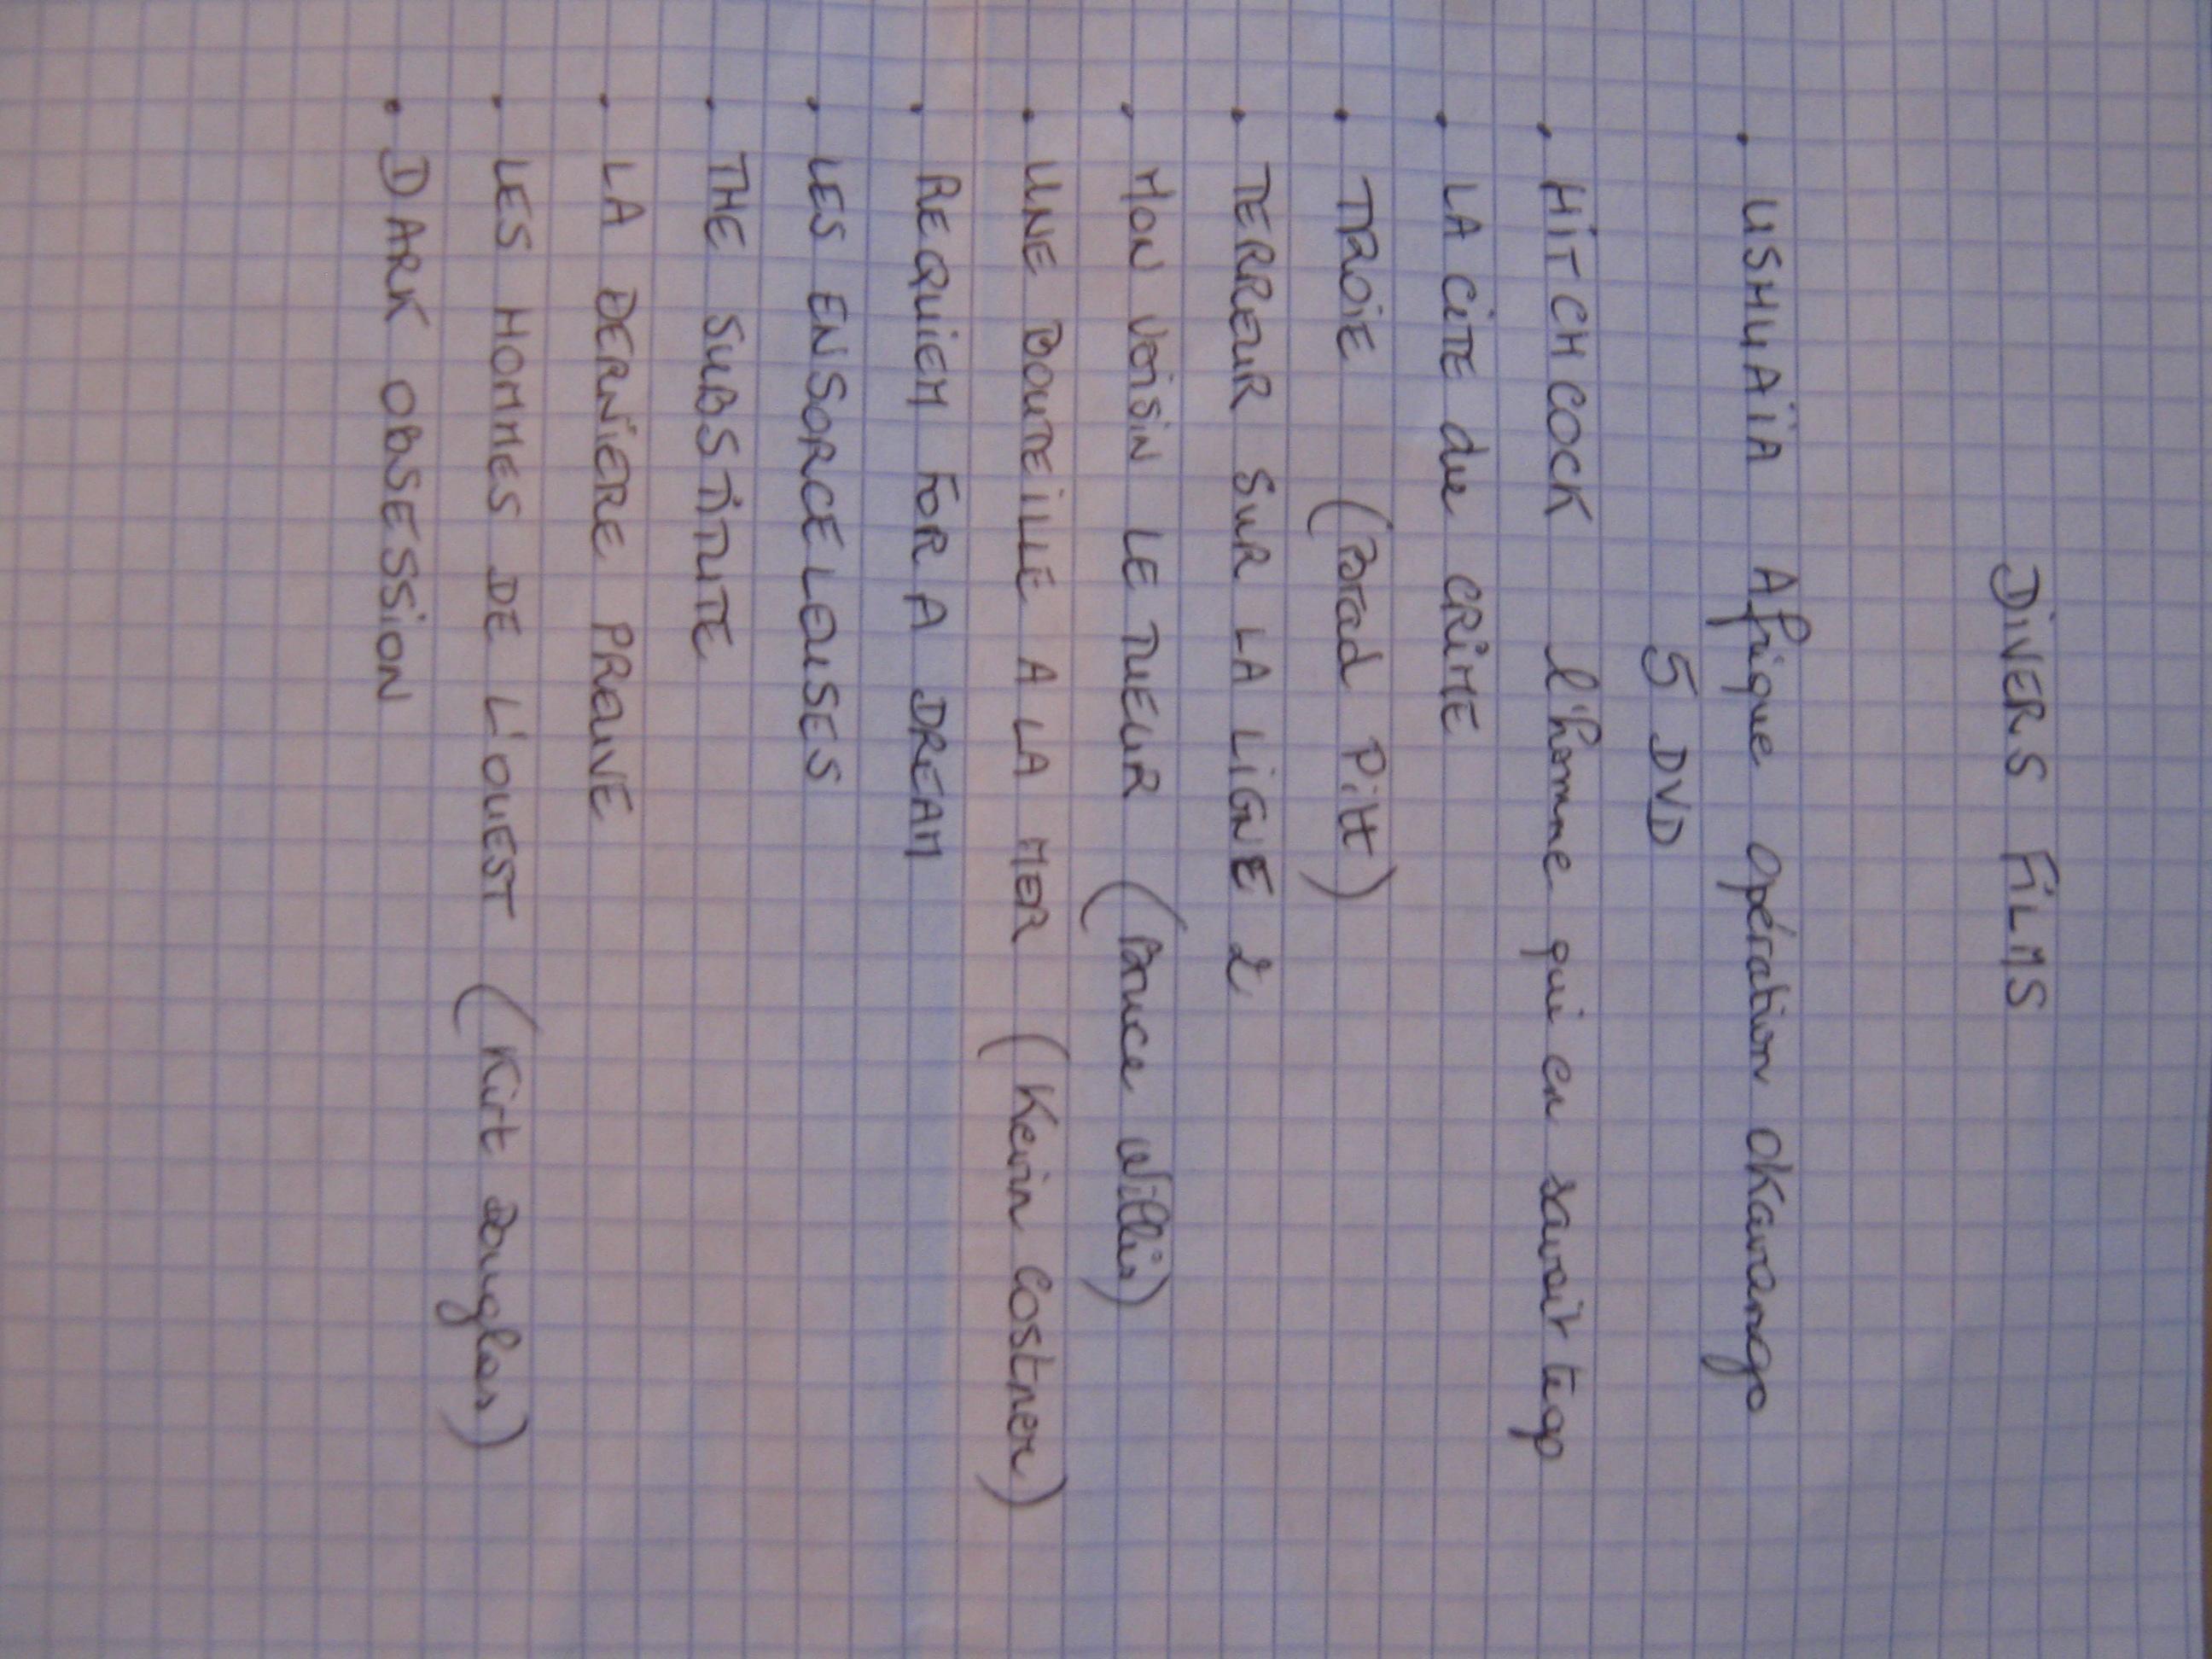 DIVERS FILMS
. USHUAÏA Afrique Opération Okavango
5 DVD
. HITCHCOCK l'homme qui en savait trop
. LA CITE du CRIME
. TROIE (Brad Pitt)
. TERREUR SUR LA LIGNE 2
. MON VOISIN LE TUEUR (Bruce Willis)
. UNE BOUTEILLE A LA MER (Kevin Costner)
. REQUIEM FOR A DREAM
. LES ENSORCELEUSES
. THE SUBSTITUTE
. LA DERNIERE PREUVE
. LES HOMMES DE L'OUEST (Kirt Douglas)
. DARK OBSESSION